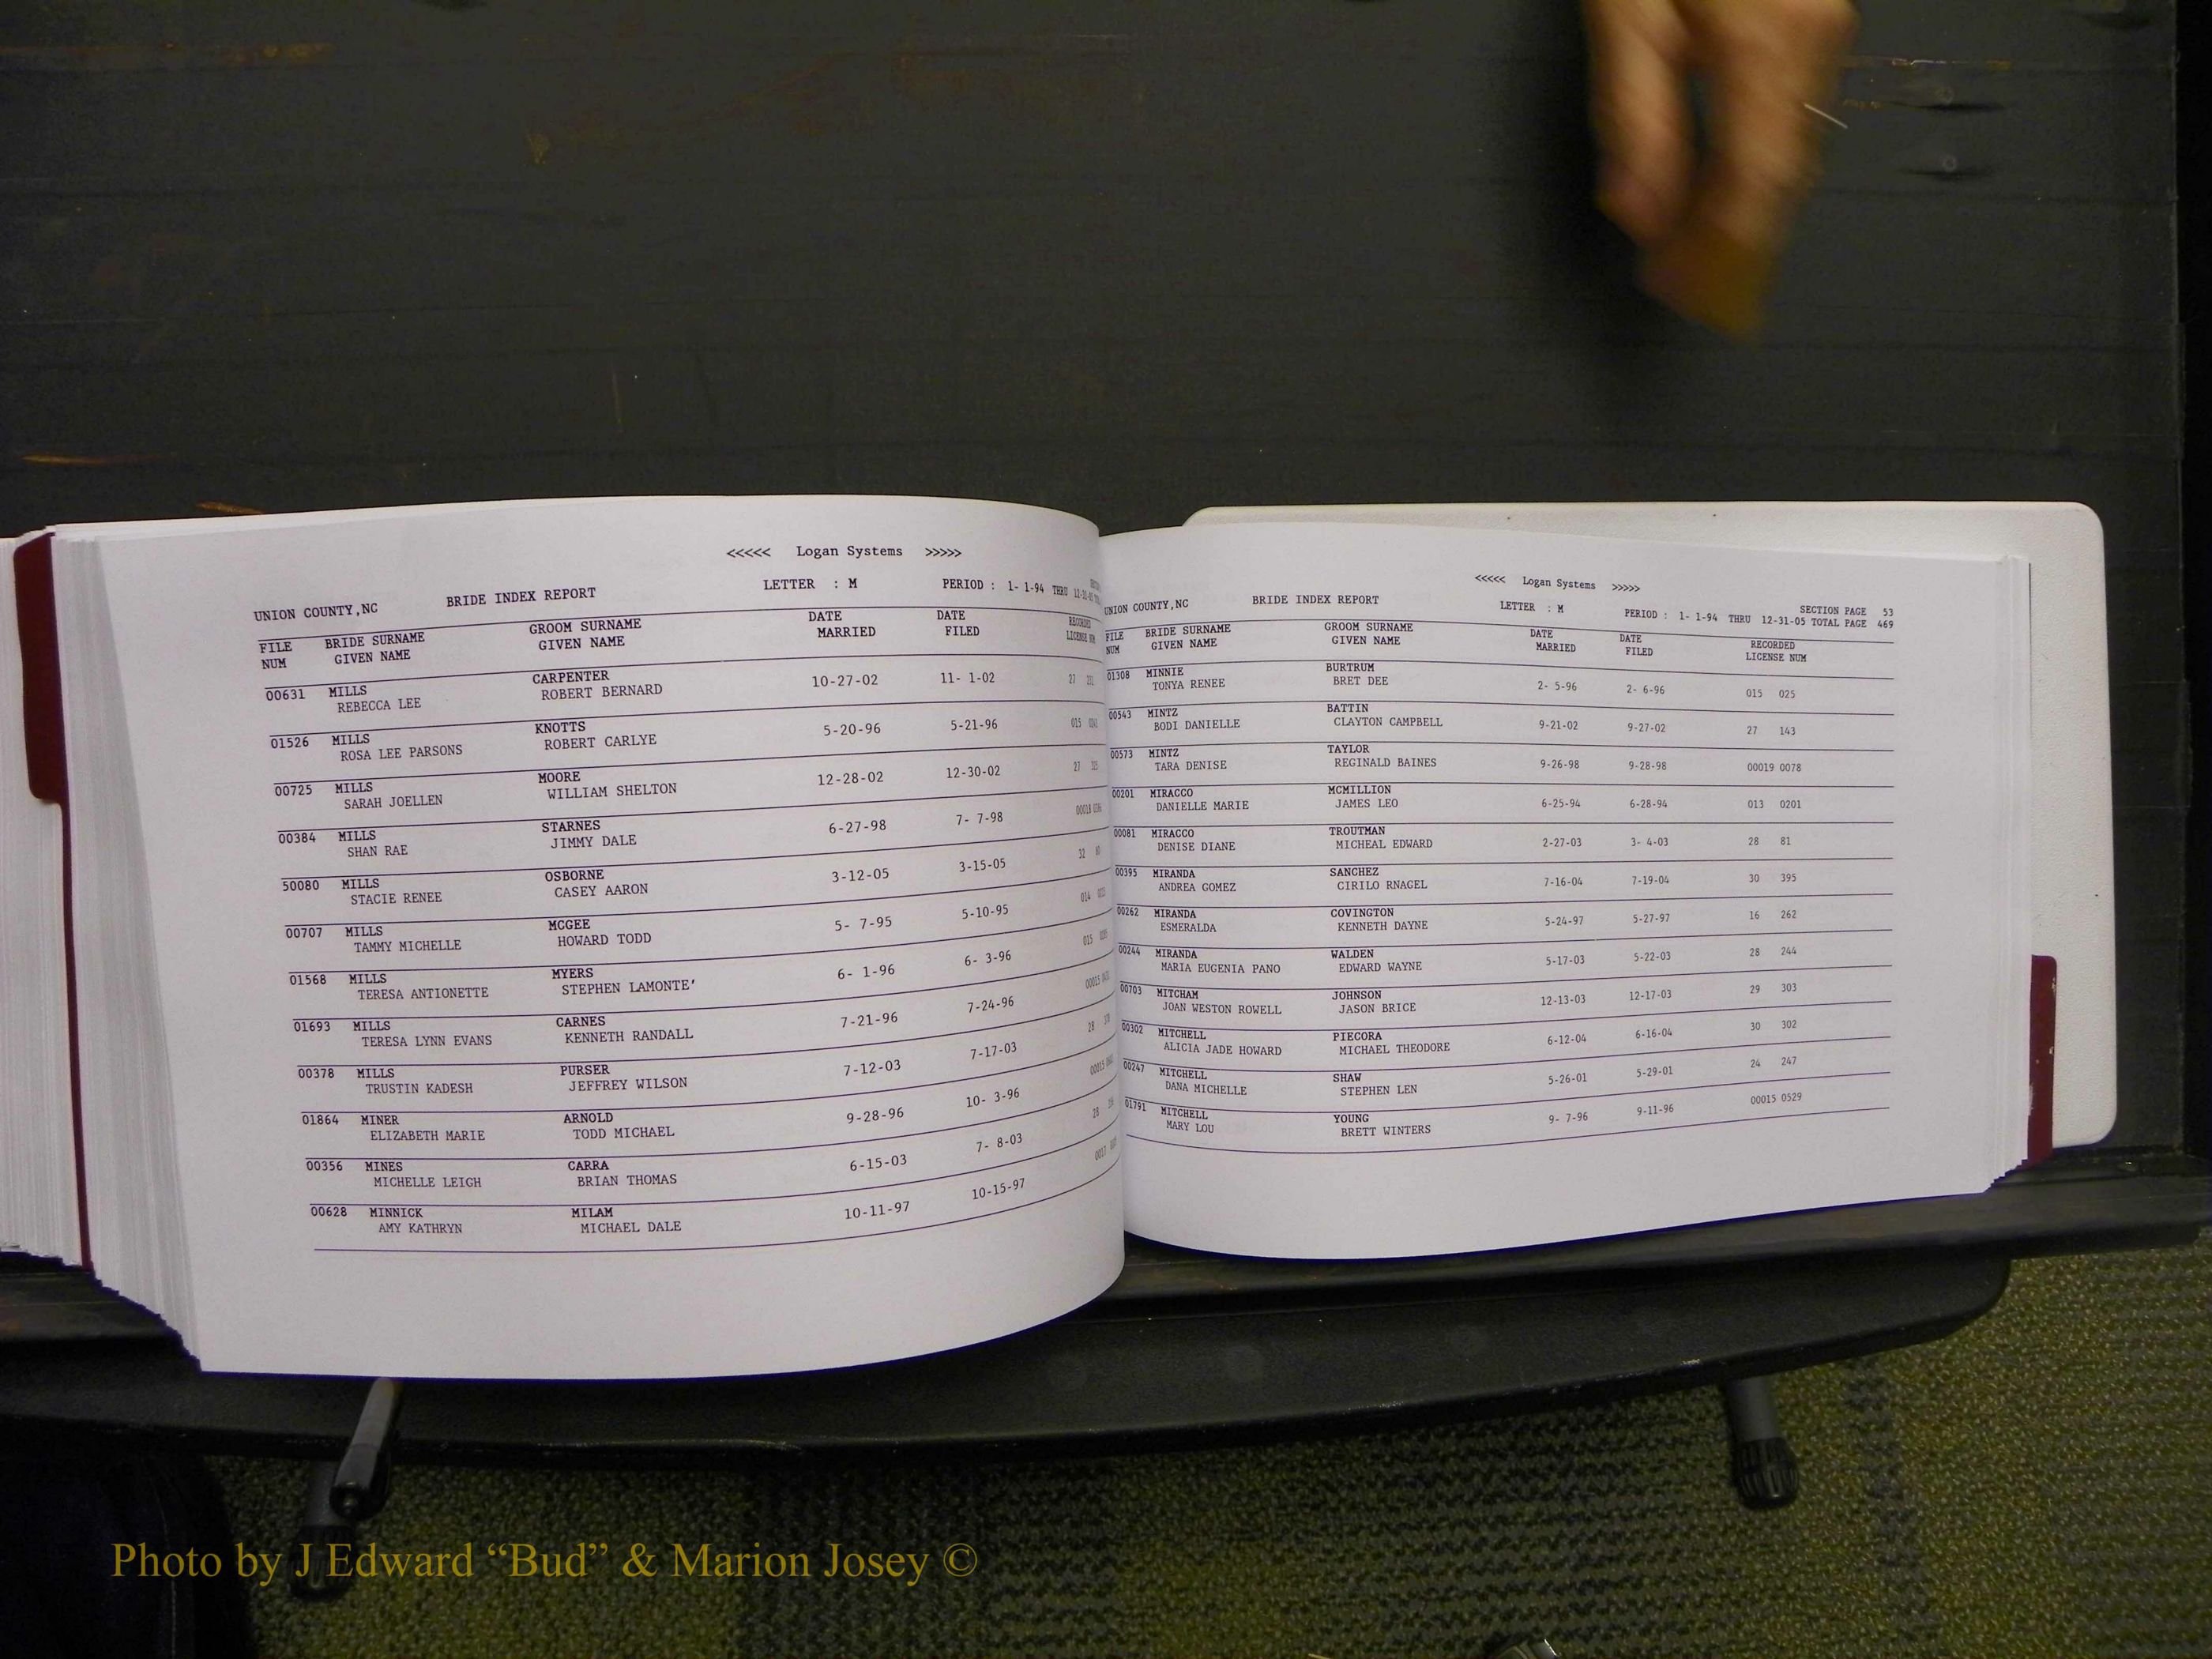 <<<<< Logan Systems >>>>>
UNION COUNTY,NC BRIDE INDEX REPORT LETTER : M PERIOD : 1- 1-94 THRU
FILE BRIDE SURNAME GROOM SURNAME DATE DATE RECORDED
NUM GIVEN NAME GIVEN NAME MARRIED FILED LICENSE NUM
00631 MILLS CARPENTER 10-27-02 11- 1-02 27
REBECCA LEE ROBERT BERNARD
01526 MILLS KNOTTS 5-20-96 5-21-96 015
ROSA LEE PARSONS ROBERT CARLYE
00725 MILLS MOORE 12-28-02 12-30-02 27
SARAH JOELLEN WILLIAM SHELTON
00384 MILLS STARNES 6-27-98 7- 7-98
SHAN RAE JIMMY DALE
50080 MILLS OSBORNE 3-12-05 3-15-05 32
STACIE RENEE CASEY AARON
00707 MILLS MCGEE 5- 7-95 5-10-95 014
TAMMY MICHELLE HOWARD TODD
01568 MILLS MYERS 6- 1-96 6- 3-96 015
TERESA ANTIONETTE STEPHEN LAMONTE'
01693 MILLS CARNES 7-21-96 7-24-96 00015
TERESA LYNN EVANS KENNETH RANDALL
00378 MILLS PURSER 7-12-03 7-17-03 28
TRUSTIN KADESH JEFFREY WILSON
01864 MINER ARNOLD 9-28-96 10- 3-96 00015
ELIZABETH MARIE TODD MICHAEL
00356 MINES CARRA 6-15-03 7- 8-03 28
MICHELLE LEIGH BRIAN THOMAS
00628 MINNICK MILAM 10-11-97 10-15-97 0017
AMY KATHRYN MICHAEL DALE
<<<<< Logan Systems >>>>>
UNION COUNTY,NC BRIDE INDEX REPORT LETTER : M SECTION PAGE 53
PERIOD : 1- 1-94 THRU 12-31-05 TOTAL PAGE 469
FILE BRIDE SURNAME GROOM SURNAME DATE DATE RECORDED
NUM GIVEN NAME GIVEN NAME MARRIED FILED LICENSE NUM
01308 MINNIE BURTRUM 2- 5-96 2- 6-96 015 025
TONYA RENEE BRET DEE
00543 MINTZ BATTIN 9-21-02 9-27-02 27 143
BODI DANIELLE CLAYTON CAMPBELL
00573 MINTZ TAYLOR 9-26-98 9-28-98 00019 0078
TARA DENISE REGINALD BAINES
00201 MIRACCO MCMILLION 6-25-94 6-28-94 013 0201
DANIELLE MARIE JAMES LEO
00081 MIRACCO TROUTMAN 2-27-03 3- 4-03 28 81
DENISE DIANE MICHEAL EDWARD
00395 MIRANDA SANCHEZ 7-16-04 7-19-04 30 395
ANDREA GOMEZ CIRILO RNAGEL
00262 MIRANDA COVINGTON 5-24-97 5-27-97 16 262
ESMERALDA KENNETH DAYNE
00244 MIRANDA WALDEN 5-17-03 5-22-03 28 244
MARIA EUGENIA PANO EDWARD WAYNE
00703 MITCHAM JOHNSON 12-13-03 12-17-03 29 303
JOAN WESTON ROWELL JASON BRICE
00302 MITCHELL PIECORA 6-12-04 6-16-04 30 302
ALICIA JADE HOWARD MICHAEL THEODORE
00247 MITCHELL SHAW 5-26-01 5-29-01 24 247
DANA MICHELLE STEPHEN LEN
01791 MITCHELL YOUNG 9- 7-96 9-11-96 00015 0529
MARY LOU BRETT WINTERS
Photo by J Edward “Bud” & Marion Josey ©